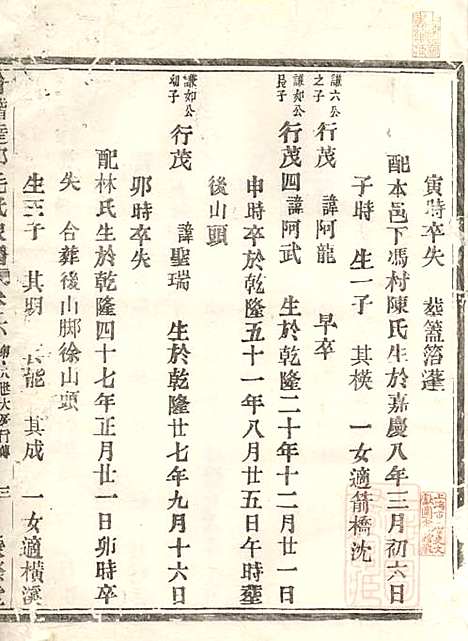 寅時卒失 塟蓋箬蓬
配本邑下馮村陳氏生於嘉慶八年三月初六日
子時 生一子 其模 一女適箭橋沈
謙六公之子 行茂 諱阿龍 早卒
謙如公長子 行茂四 諱阿武 生於乾隆二十年十二月廿一日
申時卒於乾隆五十一年八月廿五日午時塟
後山頭
謙如公幼子 行茂 諱聖瑞 生於乾隆廿七年九月十六日
卯時卒失
配林氏生於乾隆四十七年正月廿一日卯時卒
失 合葬後山脚徐山頭
生三子 其明 其能 其成 一女適橫溪